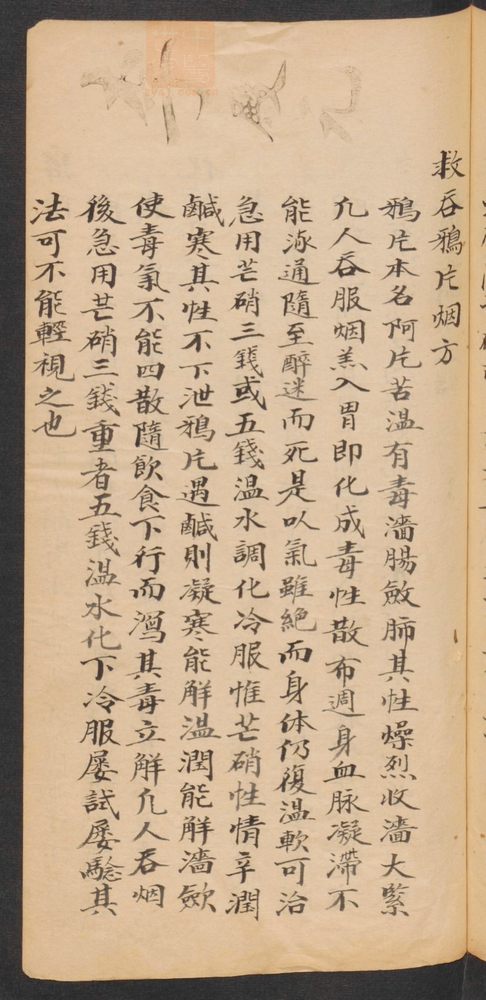 救吞鴉片烟方
鴉片本名阿片苦温有毒濇腸斂肺其性燥烈收濇大緊
凢人吞服烟羔入胃即化成毒性散布週身血脉凝滯不
能流通隨至醉迷而死是以氣雖絶而身体仍復温軟可治
急用芒硝三錢或五錢温水調化冷服惟芒硝性情辛潤
鹹寒其性不下泄鴉片遇鹹則凝寒能解温潤能解濇斂
使毒氣不能四散隨飲食下行而瀉其毒立解凢人吞烟
後急用芒硝三錢重者五錢温水化下冷服屡試屡騐其
法可不能輕視之也